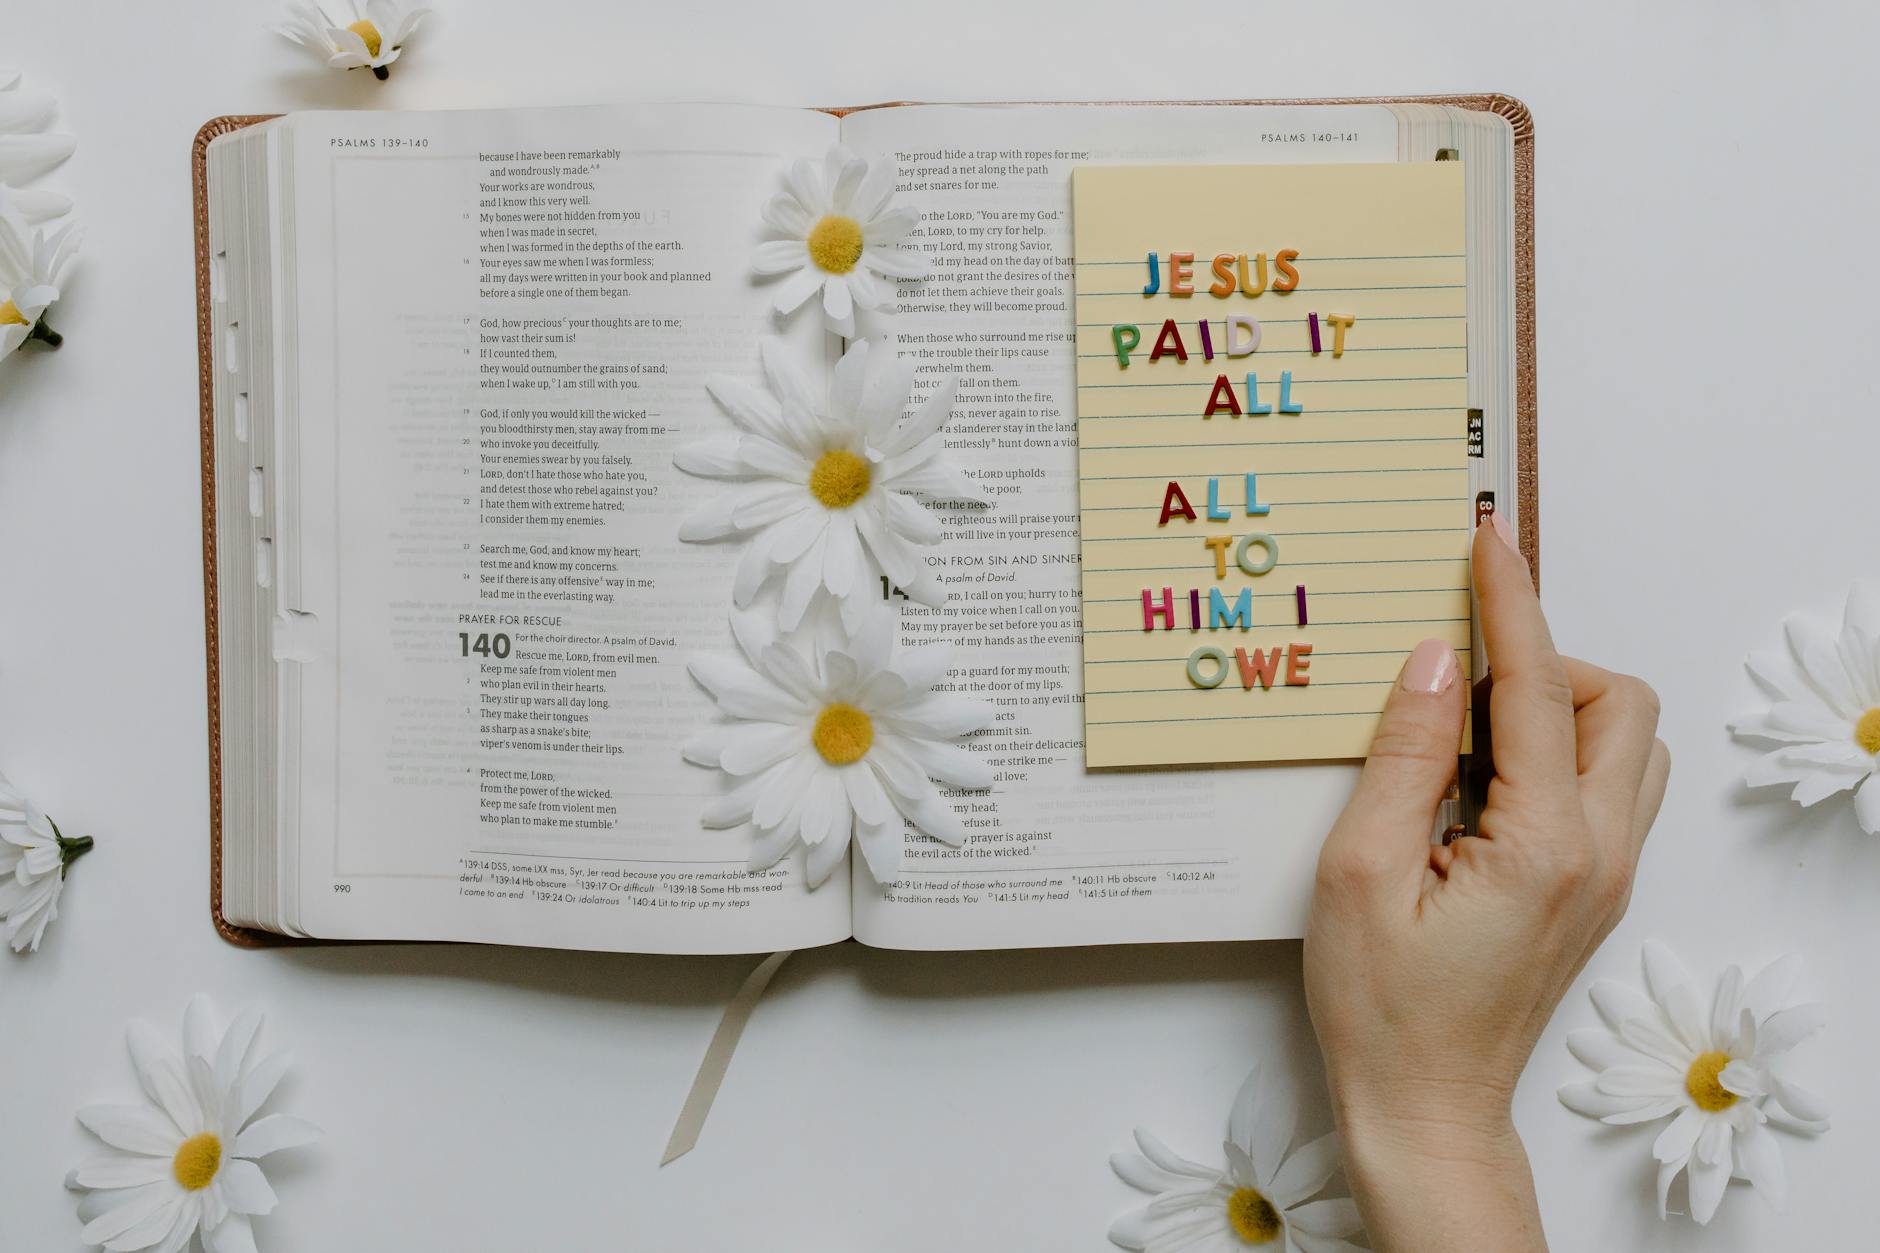 PSALMS 139–140
because I have been remarkably
and wondrously made.A,B
Your works are wondrous,
and I know this very well.
15 My bones were not hidden from you
when I was made in secret,
when I was formed in the depths of the earth.
16 Your eyes saw me when I was formless;
all my days were written in your book and planned
before a single one of them began.
17 God, how preciousC your thoughts are to me;
how vast their sum is!
18 If I counted them,
they would outnumber the grains of sand;
when I wake up,D I am still with you.
19 God, if only you would kill the wicked —
you bloodthirsty men, stay away from me —
20 who invoke you deceitfully.
Your enemies swear by you falsely.
21 LORD, don't I hate those who hate you,
and detest those who rebel against you?
22 I hate them with extreme hatred;
I consider them my enemies.
23 Search me, God, and know my heart;
test me and know my concerns.
24 See if there is any offensiveE way in me;
lead me in the everlasting way.
PRAYER FOR RESCUE
140 For the choir director. A psalm of David.
Rescue me, LORD, from evil men.
Keep me safe from violent men
2 who plan evil in their hearts.
They stir up wars all day long.
3 They make their tongues
as sharp as a snake's bite;
viper's venom is under their lips.
4 Protect me, LORD,
from the power of the wicked.
Keep me safe from violent men
who plan to make me stumble.F
A139:14 DSS, some LXX mss, Syr, Jer read because you are remarkable and won-
derful B139:14 Hb obscure C139:17 Or difficult D139:18 Some Hb mss read
I come to an end E139:24 Or idolatrous F140:4 Lit to trip up my steps
990
PSALMS 140–141
The proud hide a trap with ropes for me;
hey spread a net along the path
and set snares for me.
to the LORD, "You are my God."
LORD, to my cry for help.
LORD, my Lord, my strong Savior,
my head on the day of
do not grant the desires of the
do not let them achieve their goals.
Otherwise, they will become proud.
9 When those who surround me rise up
the trouble their lips cause
them.
hot fall on them.
thrown into the fire,
never again to rise.
a slanderer stay in the land
hunt down a
the LORD upholds
the poor,
for the needy.
righteous will praise your
will live in your presence.
FROM SIN AND
A psalm of David.
I call on you; hurry to
Listen to my voice when I call on you.
May my prayer be set before you as
the of my hands as the
up a guard for my mouth;
at the door of my lips.
turn to any evil
acts
commit sin.
feast on their delicacies.
one strike me —
love;
rebuke me —
my head;
refuse it.
Even prayer is against
the evil acts of the wicked.E
140:9 Lit Head of those who surround me B140:11 Hb obscure C140:12 Alt
Hb tradition reads You D141:5 Lit my head E141:5 Lit of them
JESUS
PAID IT
ALL
ALL
TO
HIM I
OWE
JN
AC
RM
CO